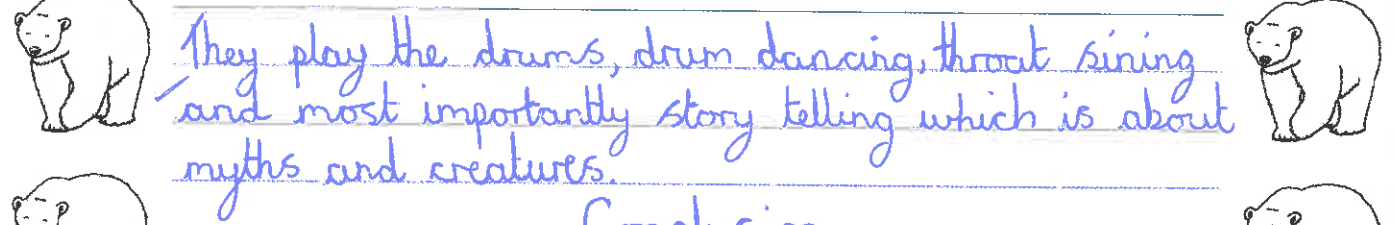 They play the drums, drum dancing, throat sining
and most importantly story telling which is about
myths and creatures.